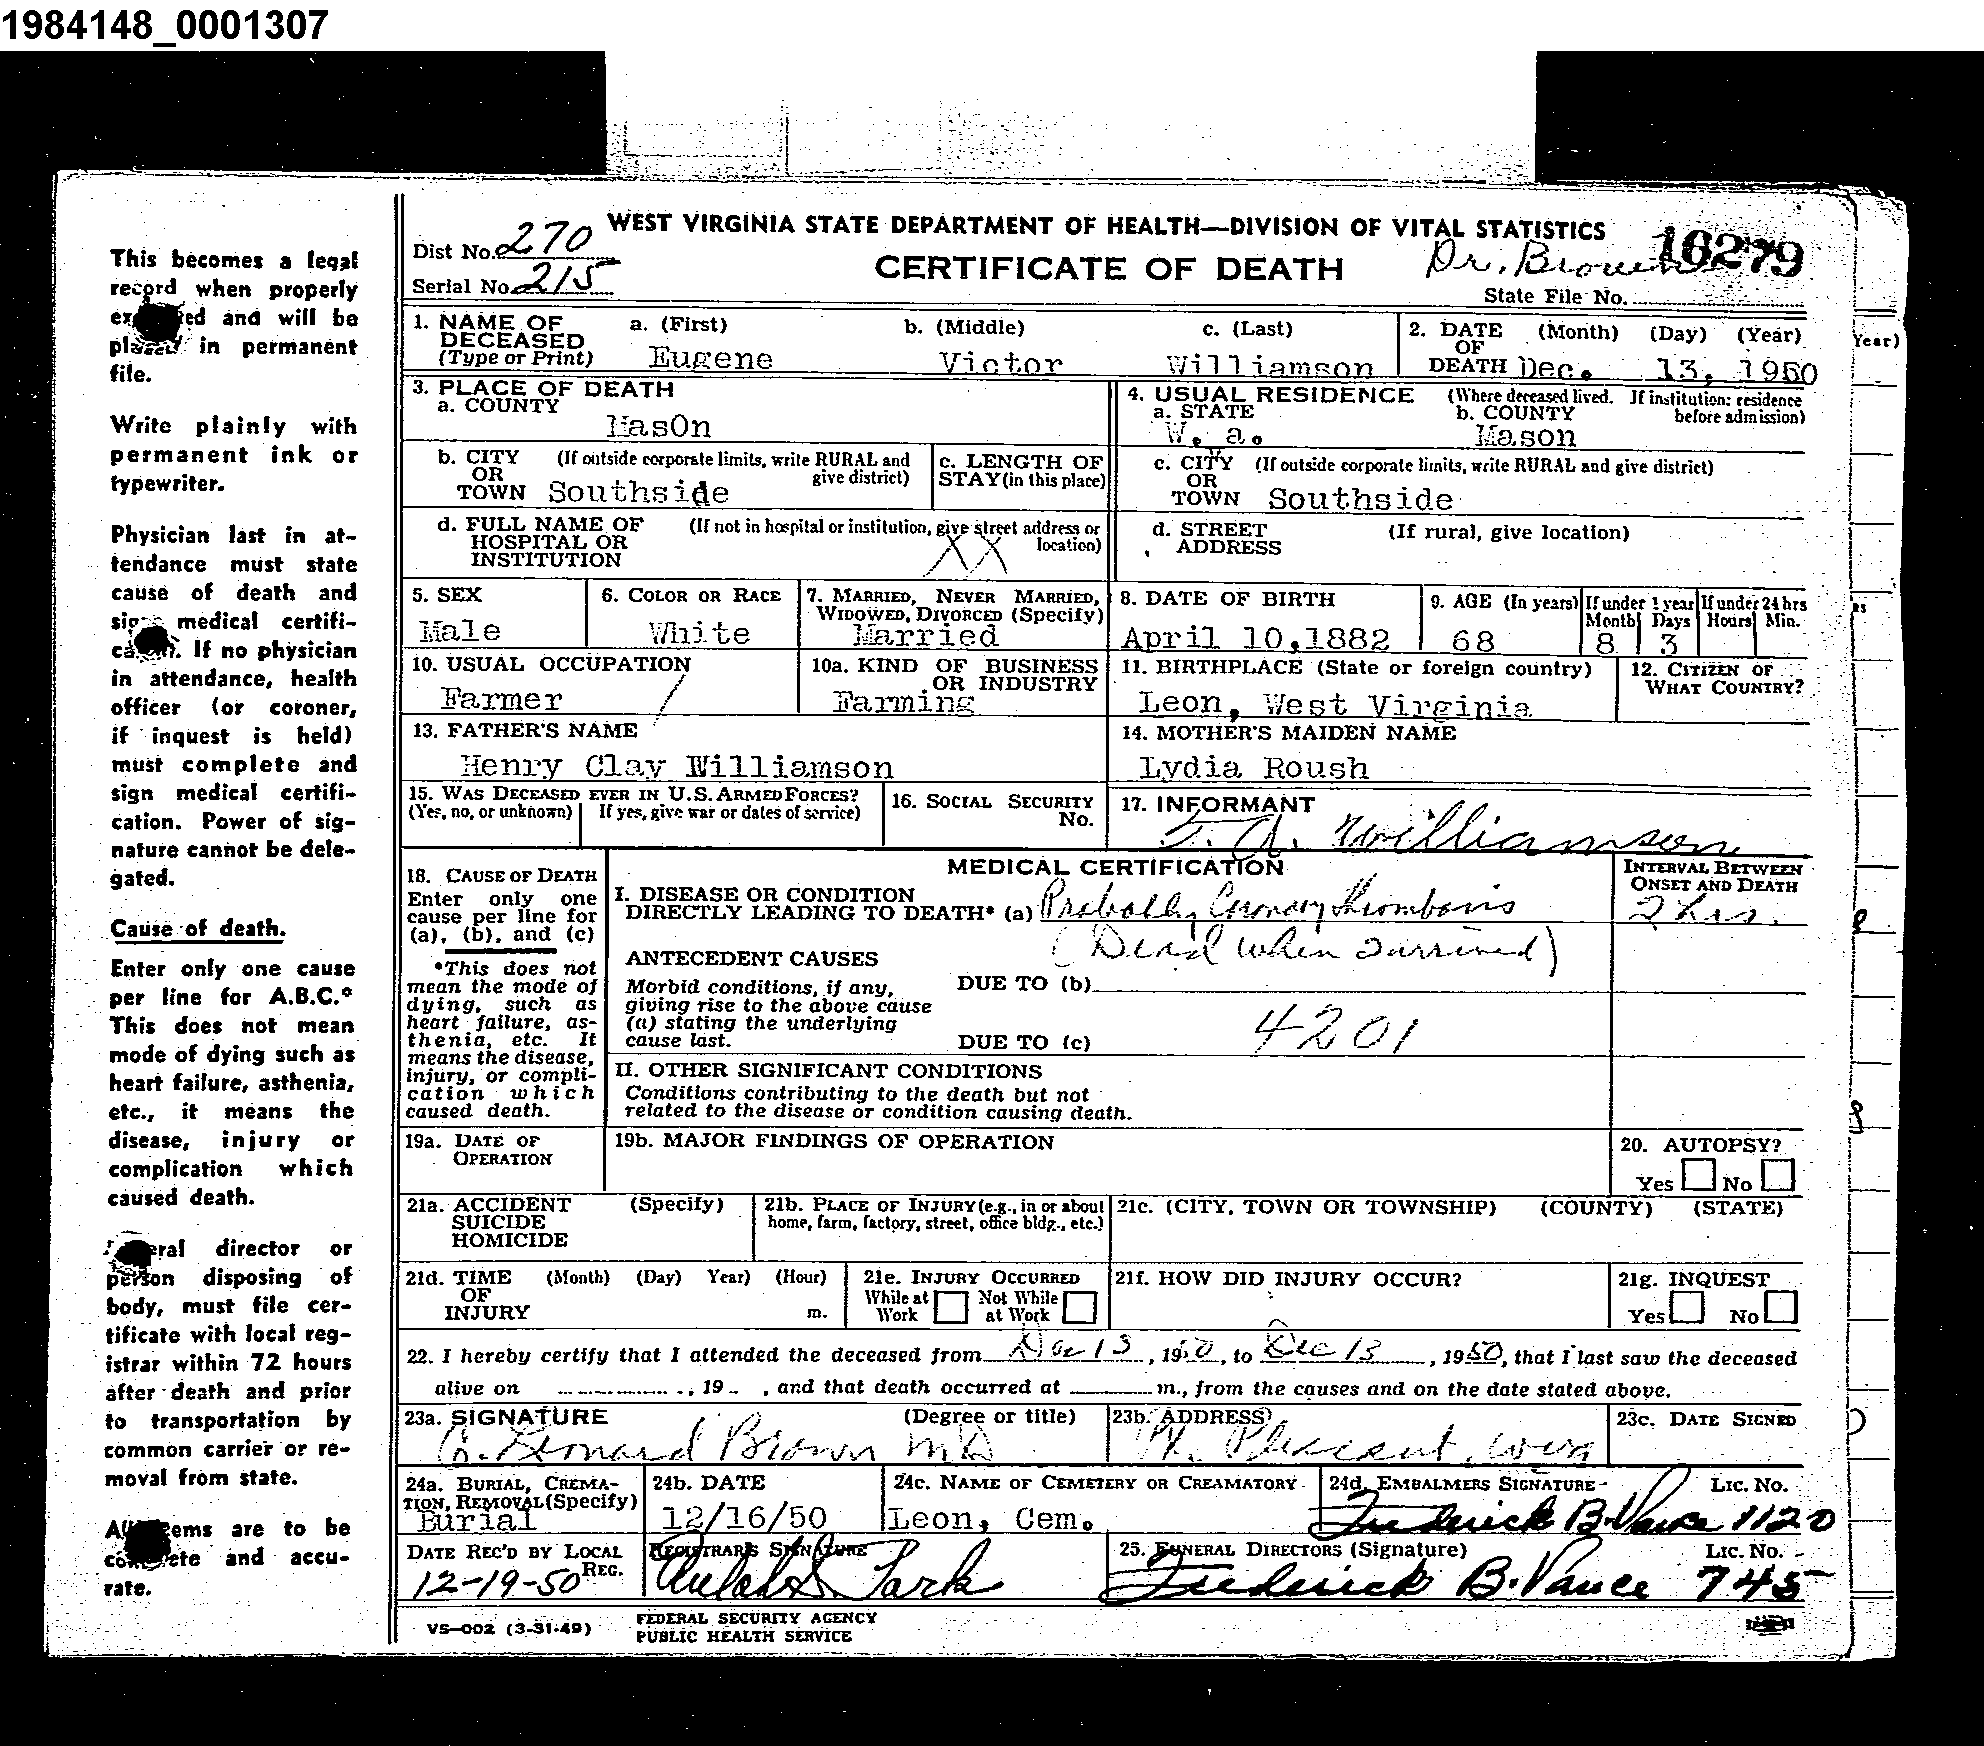 1984148_0001307
This becomes a legal
record when properly
ed and will be
placed in permanent
file.
Write plainly with
permanent ink or
typewriter.
Physician last in at-
tendance must state
cause of death and
sign medical certifi-
If no physician
in attendance, health
officer (or coroner,
if inquest is held)
must complete and
sign medical certifi-
cation. Power of sig-
nature cannot be dele-
gated.
Cause of death.
Enter only one cause
per line for A.B.C.*
This does not mean
mode of dying such as
heart failure, asthenia,
etc., it means the
disease, injury or
complication which
caused death.
eral director or
person disposing of
body, must file cer-
tificate with local reg-
istrar within 72 hours
after death and prior
to transportation by
common carrier or re-
moval from state.
ems are to be
ete and accu-
rate.
WEST VIRGINIA STATE DEPARTMENT OF HEALTH—DIVISION OF VITAL STATISTICS
Dist No. 270
Serial No. 215
CERTIFICATE OF DEATH
Dr. Brown 16279
State File No.
1. NAME OF DECEASED (Type or Print) a. (First) b. (Middle) c. (Last)
Eugene Victor Williamson
2. DATE OF DEATH (Month) (Day) (Year)
Dec. 13, 1950
Year)
3. PLACE OF DEATH
a. COUNTY
MasOn
4. USUAL RESIDENCE (Where deceased lived. If institution: residence before admission)
a. STATE b. COUNTY
W. a. Mason
b. CITY OR TOWN (If outside corporate limits, write RURAL and give district)
Southside
c. LENGTH OF STAY (in this place)
c. CITY OR TOWN (If outside corporate limits, write RURAL and give district)
Southside
d. FULL NAME OF HOSPITAL OR INSTITUTION (If not in hospital or institution, give street address or location)
XX
d. STREET ADDRESS (If rural, give location)
5. SEX
Male
6. COLOR OR RACE
White
7. MARRIED, NEVER MARRIED, WIDOWED, DIVORCED (Specify)
Married
8. DATE OF BIRTH
April 10,1882
9. AGE (In years)
68
If under 1 year Month Days
8 3
If under 24 hrs Hours Min.
10. USUAL OCCUPATION
Farmer
10a. KIND OF BUSINESS OR INDUSTRY
Farming
11. BIRTHPLACE (State or foreign country)
Leon, West Virginia
12. CITIZEN OF WHAT COUNTRY?
13. FATHER'S NAME
Henry Clay Williamson
14. MOTHER'S MAIDEN NAME
Lydia Roush
15. WAS DECEASED EVER IN U.S. ARMED FORCES?
(Yes, no, or unknown) If yes, give war or dates of service)
16. SOCIAL SECURITY No.
17. INFORMANT
Williamson
MEDICAL CERTIFICATION
18. CAUSE OF DEATH
Enter only one
cause per line for
(a), (b), and (c)
*This does not
mean the mode of
dying, such as
heart failure, as-
thenia, etc. It
means the disease,
injury, or compli-
cation which
caused death.
I. DISEASE OR CONDITION
DIRECTLY LEADING TO DEATH* (a) Probably Coronary thrombosis
(Dead when I arrived)
INTERVAL BETWEEN ONSET AND DEATH
2 hrs.
ANTECEDENT CAUSES
Morbid conditions, if any,
giving rise to the above cause
(a) stating the underlying
cause last.
DUE TO (b)
4201
DUE TO (c)
II. OTHER SIGNIFICANT CONDITIONS
Conditions contributing to the death but not
related to the disease or condition causing death.
19a. DATE OF OPERATION
19b. MAJOR FINDINGS OF OPERATION
20. AUTOPSY?
Yes No
21a. ACCIDENT SUICIDE HOMICIDE (Specify)
21b. PLACE OF INJURY (e.g., in or about home, farm, factory, street, office bldg., etc.)
21c. (CITY, TOWN OR TOWNSHIP) (COUNTY) (STATE)
21d. TIME OF INJURY (Month) (Day) Year) (Hour) m.
21e. INJURY OCCURRED
While at Work Not While at Work
21f. HOW DID INJURY OCCUR?
21g. INQUEST
Yes No
22. I hereby certify that I attended the deceased from Dec 13, 1950, to Dec 13, 1950, that I last saw the deceased
alive on , 19 , and that death occurred at m., from the causes and on the date stated above.
23a. SIGNATURE (Degree or title)
Leonard Brown MD
23b. ADDRESS
Pt. Pleasant, W Va
23c. DATE SIGNED
24a. BURIAL, CREMA-TION, REMOVAL (Specify)
Burial
24b. DATE
12/16/50
24c. NAME OF CEMETERY OR CREAMATORY
Leon, Cem.
24d. EMBALMERS SIGNATURE LIC. NO.
Frederick B. Vance 1120
DATE REC'D BY LOCAL REG.
12-19-50
REGISTRARS SIGNATURE
25. FUNERAL DIRECTORS (Signature) LIC. NO.
Frederick B. Vance 745
VS—002 (3-31-49)
FEDERAL SECURITY AGENCY
PUBLIC HEALTH SERVICE